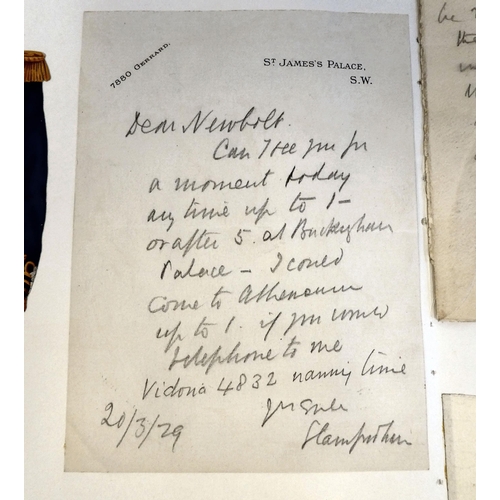 7880 GERRARD.
ST JAMES'S PALACE,
S.W.
Dear Newbolt.
Can I see you for
a moment today
any time up to 1 -
or after 5. at Buckingham
Palace - I could
come to Athenaeum
up to 1. if you would
telephone to me
Victoria 4832 naming time
20/3/29
be
the